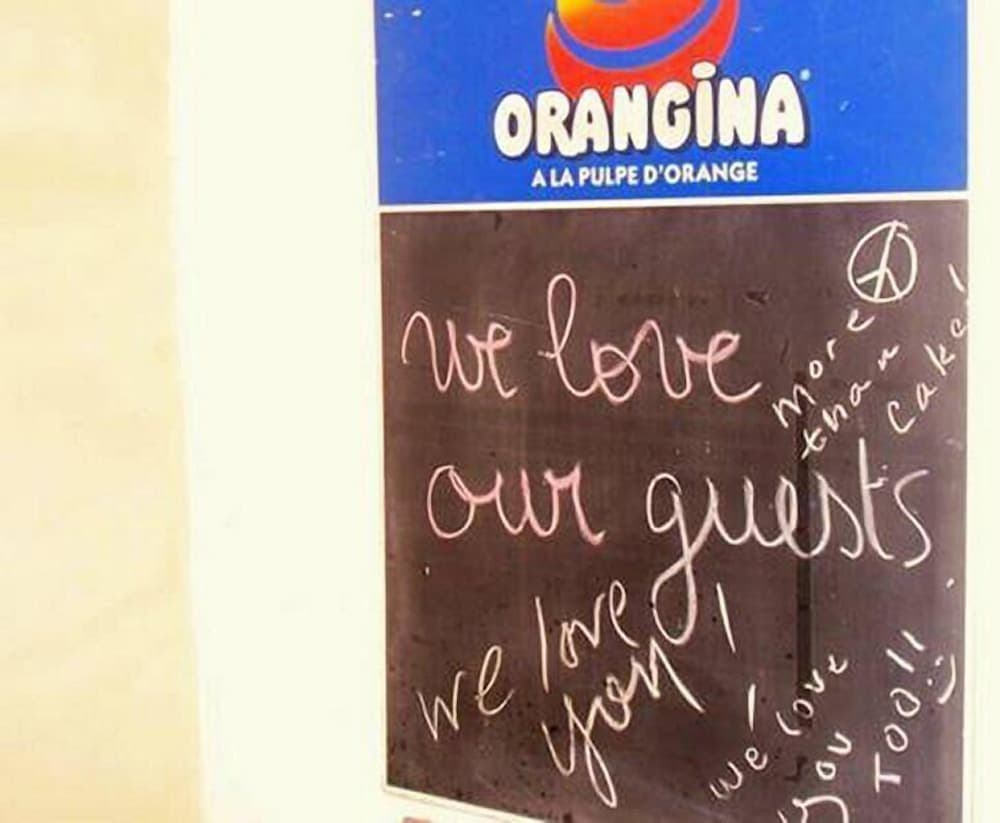 ORANGINA
A LA PULPE D'ORANGE
we love
our guests
more
than
cake!
we love
you!
we love
you
TOO!!